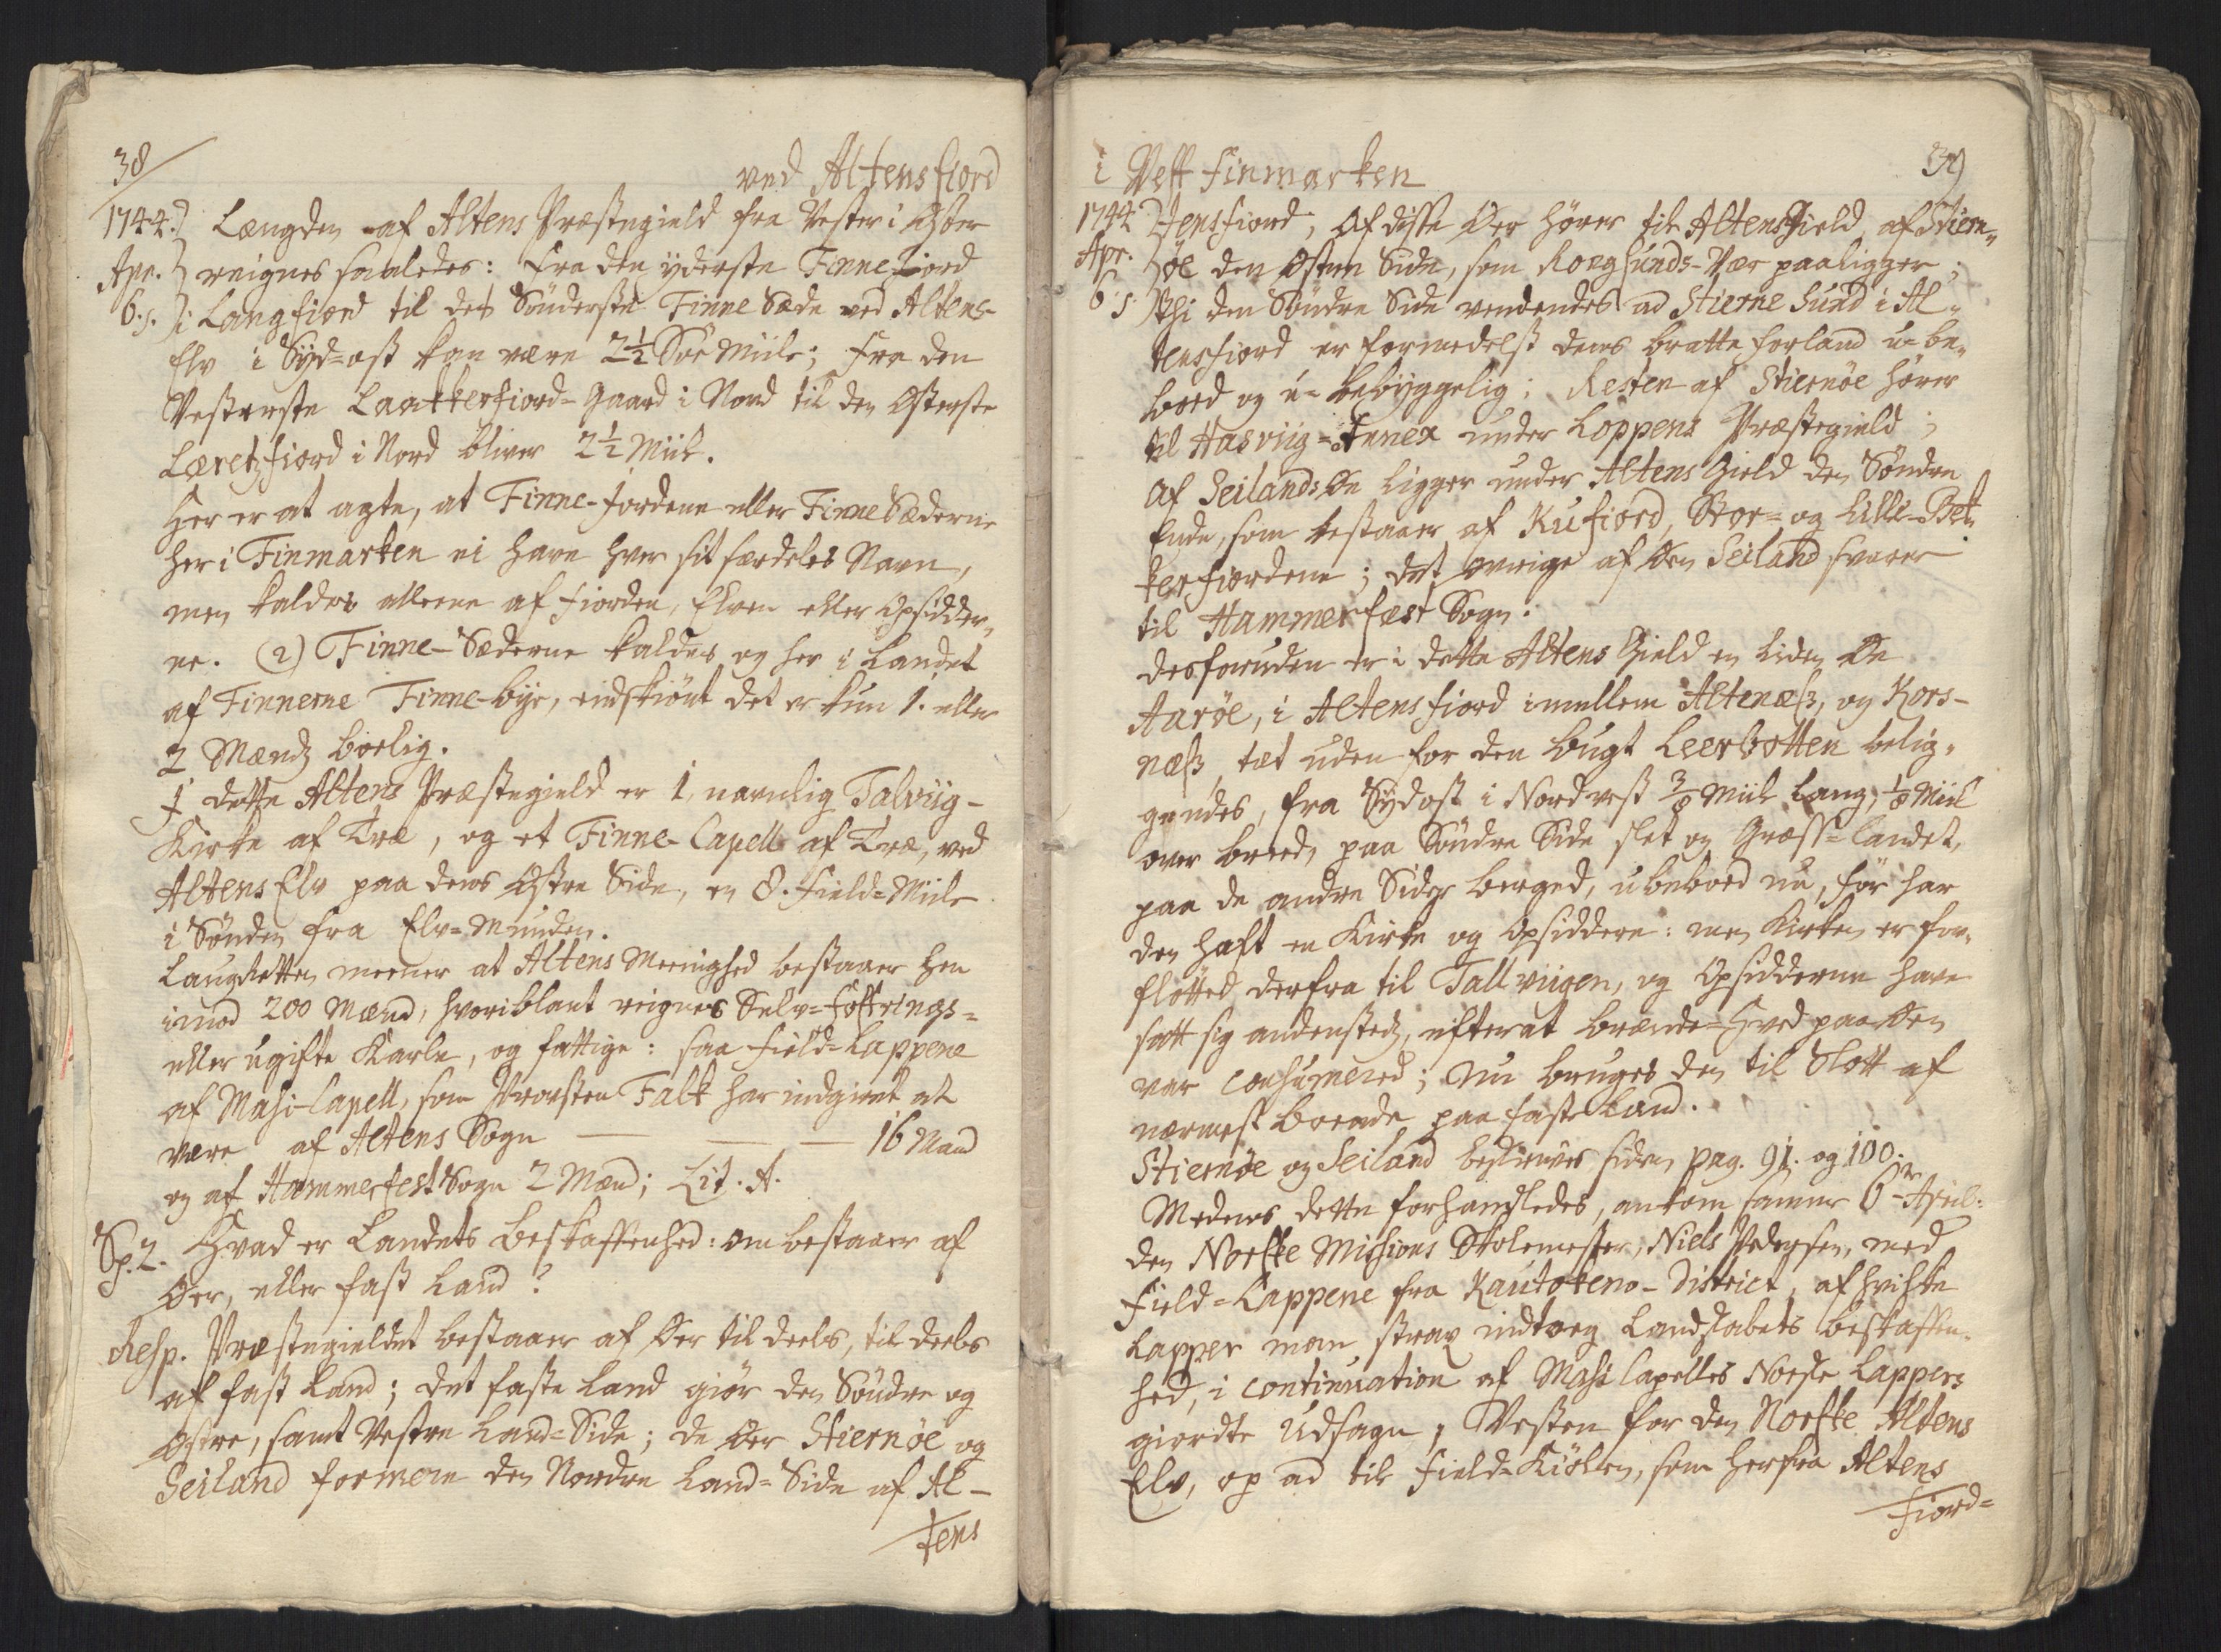 38
ved Altensfiord
1744. Længden af Altens Præstegield fra Vester i Øster
Apr. reignes saaledes: fra den yderste Finne Jord
6. s. i Langfiord til det Sönderste Finne Sæde ved Altens-
Elv i Syd-ost kan være 2½ Söe Miile; fra den
Vesterste Laakkerfiord-Gaard i Nord til den Österste
Læretzfiord i Nord bliver 2½ Miil.
Her er at agte, at Finne-Jordene eller Finne Sæderne
her i Finmarken ei have hver sit særdeles Navn,
men kaldes alleene af fiorden, Elven eller Opsidder-
ne. (2) Finne-Sæderne kaldes og her i Landet
af Finnerne Finne-bÿe, endskiönt det er kun 1. eller
2 Mænds boelig.
I dette Altens Præstegield er 1, navnlig Talviig-
Kirke af Træ, og et Finne-Capell af Træ, ved
Altens Elv paa dens Østre Side, en 8. Field-Miile
i Sönden fra Elv-Munden.
Laugretten meener at Altens Meenighed bestaaer hen
imod 200 Mænd, hvoriblant reignes Selv-Fostrings-
eller ugifte Karle, og fattige: saa Field-Lappene
af Masi-Capell, som Provsten Falk har indgivet at
være af Altens Sogn — — — 16 Mand
og af Hammerfest Sogn 2 Mænd; Lit. A.
Sp. 2. Hvad er Landets Beskaffenhed: om bestaaer af
Øer, eller fast Land?
Resp. Præstegieldet bestaaer af Øer til deels, til deels
af fast Land; det faste Land giör den Söndre og
Østre, samt Vestre Land-Side; de Øer Stiernöe og
Seiland formere den Nordre Land-Side af Al-
tens
i Vest Finmarken
39
1744. tensfiord; Af disse Øer hörer til Altens Gield af Stiern-
Apr. öe den Østre Side, som Rognsunds-Vær paaligger;
6 s. Thi den Söndre Side vendendes ad Stierne Sund i Al-
tensfiord er formedelst dens bratte forland u-be-
boed og u-bebÿggelig; Resten af Stiernöe hörer
til Hasviig-Annex under Loppens Præstegield;
Af Seilands Øe ligger under Altens Gield den Söndre
Ende, som bestaaer af Kufiord, Stor- og Lille-Bek-
kerfiordene; det övrige af Øen Seiland svarer
til Hammerfæst Sogn.
Desforuden er i dette Altens Gield en liden Øe
Aaröe, i Altensfiord imellem Altenæss, og Kors-
næss, tæt uden for den bugt Leerbotten belig-
gendes, fra Sydost i Nordvest ⅜ Miil lang, ⅛ Miil
over breed, paa Söndre Side slet og Græss-landet,
paa de andre Sider berged, ubeboed nu, för har
den haft en Kirke og Opsiddere: men Kirken er for-
flötted derfra til Tallviigen, og Opsidderne have
satt sig andensteds, efterat brænde-Hved paa Øen
var consumered; Nu bruges den til Slott af
nærmest boende paa faste Land.
Stiernöe og Seiland beskrives siden pag. 91. og 100.
Medens dette forhandledes, ankom samme 6te April:
den Norske Missions Skolemester, Niels Pedersen, med
Field-Lappene fra Kautokeno-District, af hvilke
Lapper man strax indtoeg Landskabets beskaffen-
hed, i continuation af Masi Capelles Norske Lappers
giordte Udsagn, Vesten for den Norske Altens
Elv, op ad til Field-Kiölen, som herfra Altens
Fiord-